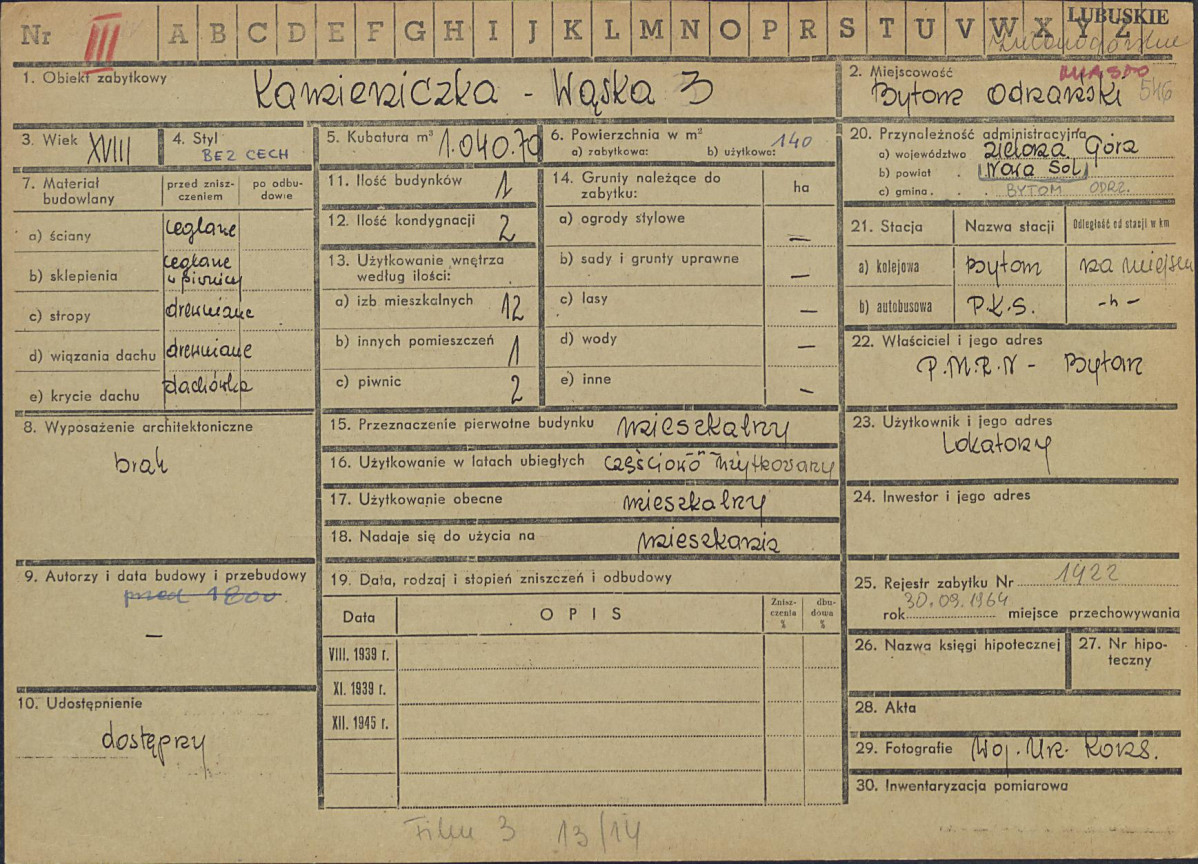 Nr III A B C D E F G H I J K L M N O P R S T U V W X Y Z
LUBUSKIE
zielonogórskie
1. Obiekt zabytkowy
Kamieniczka - Wąska 3
2. Miejscowość
MIASTO
Bytom Odrzański 546
3. Wiek XVIII
4. Styl
BEZ CECH
5. Kubatura m³ 1.040.70
6. Powierzchnia w m²
a) zabytkowa: b) użytkowa: 140
20. Przynależność administracyjna
a) województwo Zielona Góra
b) powiat Nowa Sól
c) gmina BYTOM ODRZ.
7. Materiał budowlany
przed zniszczeniem
po odbudowie
a) ściany ceglane
b) sklepienia ceglane w piwnicy
c) stropy drewniane
d) wiązania dachu drewniane
e) krycie dachu dachówka
11. Ilość budynków 1
12. Ilość kondygnacji 2
13. Użytkowanie wnętrza
według ilości:
a) izb mieszkalnych 12
b) innych pomieszczeń 1
c) piwnic 2
14. Grunty należące do
zabytku:
ha
a) ogrody stylowe —
b) sady i grunty uprawne —
c) lasy —
d) wody —
e) inne —
21. Stacja Nazwa stacji Odległość od stacji w km
a) kolejowa Bytom na miejscu
b) autobusowa P.K.S. -n-
22. Właściciel i jego adres
P.M.R.N - Bytom
8. Wyposażenie architektoniczne
brak
15. Przeznaczenie pierwotne budynku mieszkalny
16. Użytkowanie w latach ubiegłych częściowo użytkowany
17. Użytkowanie obecne mieszkalny
18. Nadaje się do użycia na mieszkania
23. Użytkownik i jego adres
Lokatorzy
24. Inwestor i jego adres
9. Autorzy i data budowy i przebudowy
przed 1800.
—
19. Data, rodzaj i stopień zniszczeń i odbudowy
Data OPIS Znisz-czenia % dbu-dowa %
VIII. 1939 r.
XI. 1939 r.
XII. 1945 r.
25. Rejestr zabytku Nr 1922
rok 30.09.1964 miejsce przechowywania
26. Nazwa księgi hipotecznej
27. Nr hipo-
teczny
10. Udostępnienie
dostępny
28. Akta
29. Fotografie Woj. Urz. Kons.
30. Inwentaryzacja pomiarowa
Film 3 13/14